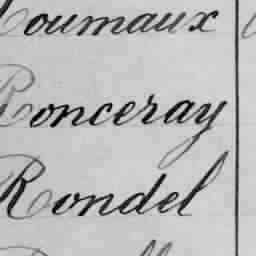 Roumaux
Ronceray
Rondel